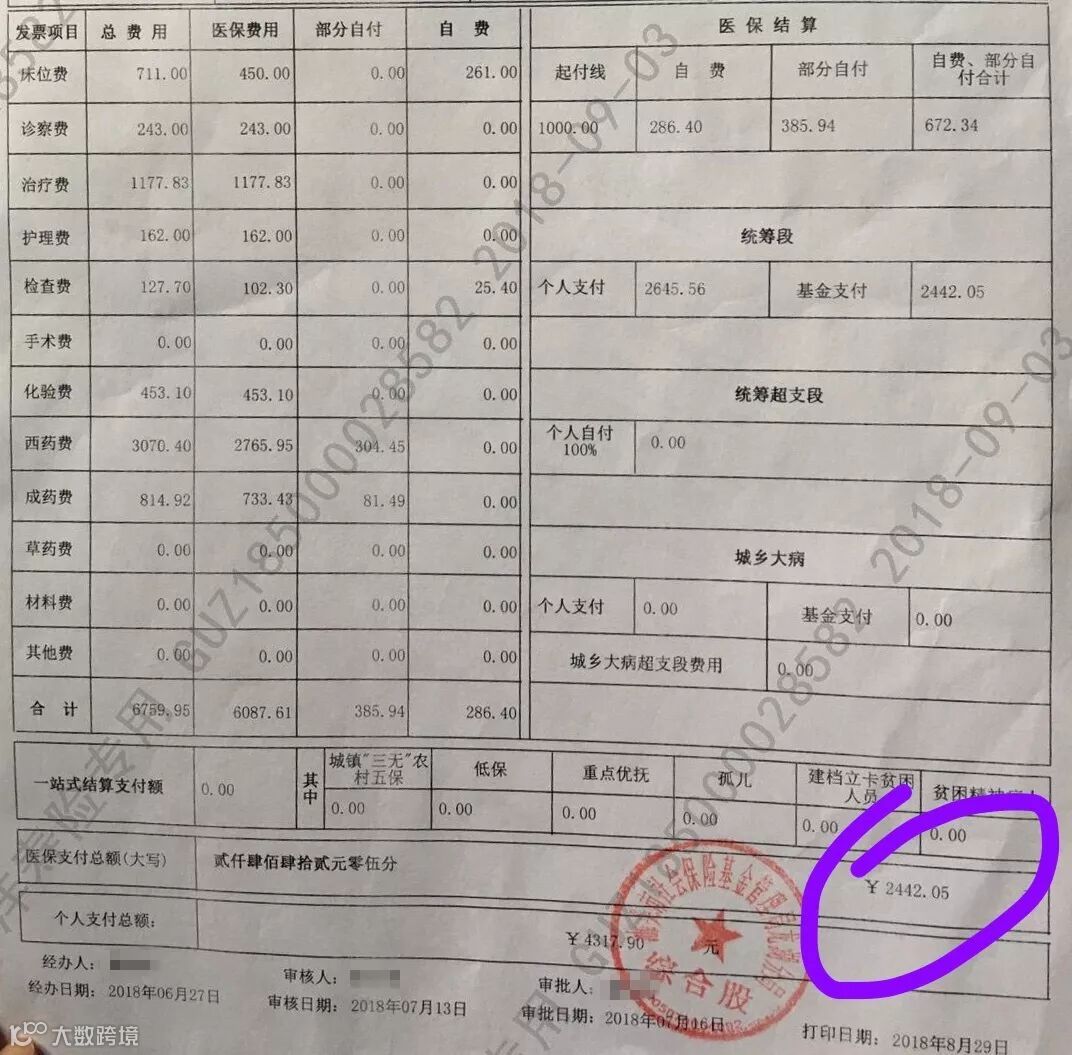 发票项目 总费用 医保费用 部分自付 自费
床位费 711.00 450.00 0.00 261.00
诊察费 243.00 243.00 0.00 0.00
治疗费 1177.83 1177.83 0.00 0.00
护理费 162.00 162.00 0.00 0.00
检查费 127.70 102.30 0.00 25.40
手术费 0.00 0.00 0.00 0.00
化验费 453.10 453.10 0.00 0.00
西药费 3070.40 2765.95 304.45 0.00
成药费 814.92 733.43 81.49 0.00
草药费 0.00 0.00 0.00 0.00
材料费 0.00 0.00 0.00 0.00
其他费 0.00 0.00 0.00 0.00
合计 6759.95 6087.61 385.94 286.40
医保结算
起付线 自费 部分自付 自费、部分自付合计
1000.00 286.40 385.94 672.34
统筹段
个人支付 2645.56 基金支付 2442.05
统筹超支段
个人自付100% 0.00
城乡大病
个人支付 0.00 基金支付 0.00
城乡大病超支段费用 0.00
一站式结算支付额 0.00 其中 城镇"三无"农村五保 低保 重点优抚 孤儿 建档立卡贫困人员 贫困精神病人
0.00 0.00 0.00 0.00 0.00 0.00
医保支付总额(大写) 贰仟肆佰肆拾贰元零伍分 ￥2442.05
个人支付总额: ￥4317.90 元
经办人: 审核人: 审批人:
经办日期: 2018年06月27日 审核日期: 2018年07月13日 审批日期: 2018年07月16日 打印日期: 2018年8月29日
综合股
GUZ1850000028582 2018-09-03
大数跨境